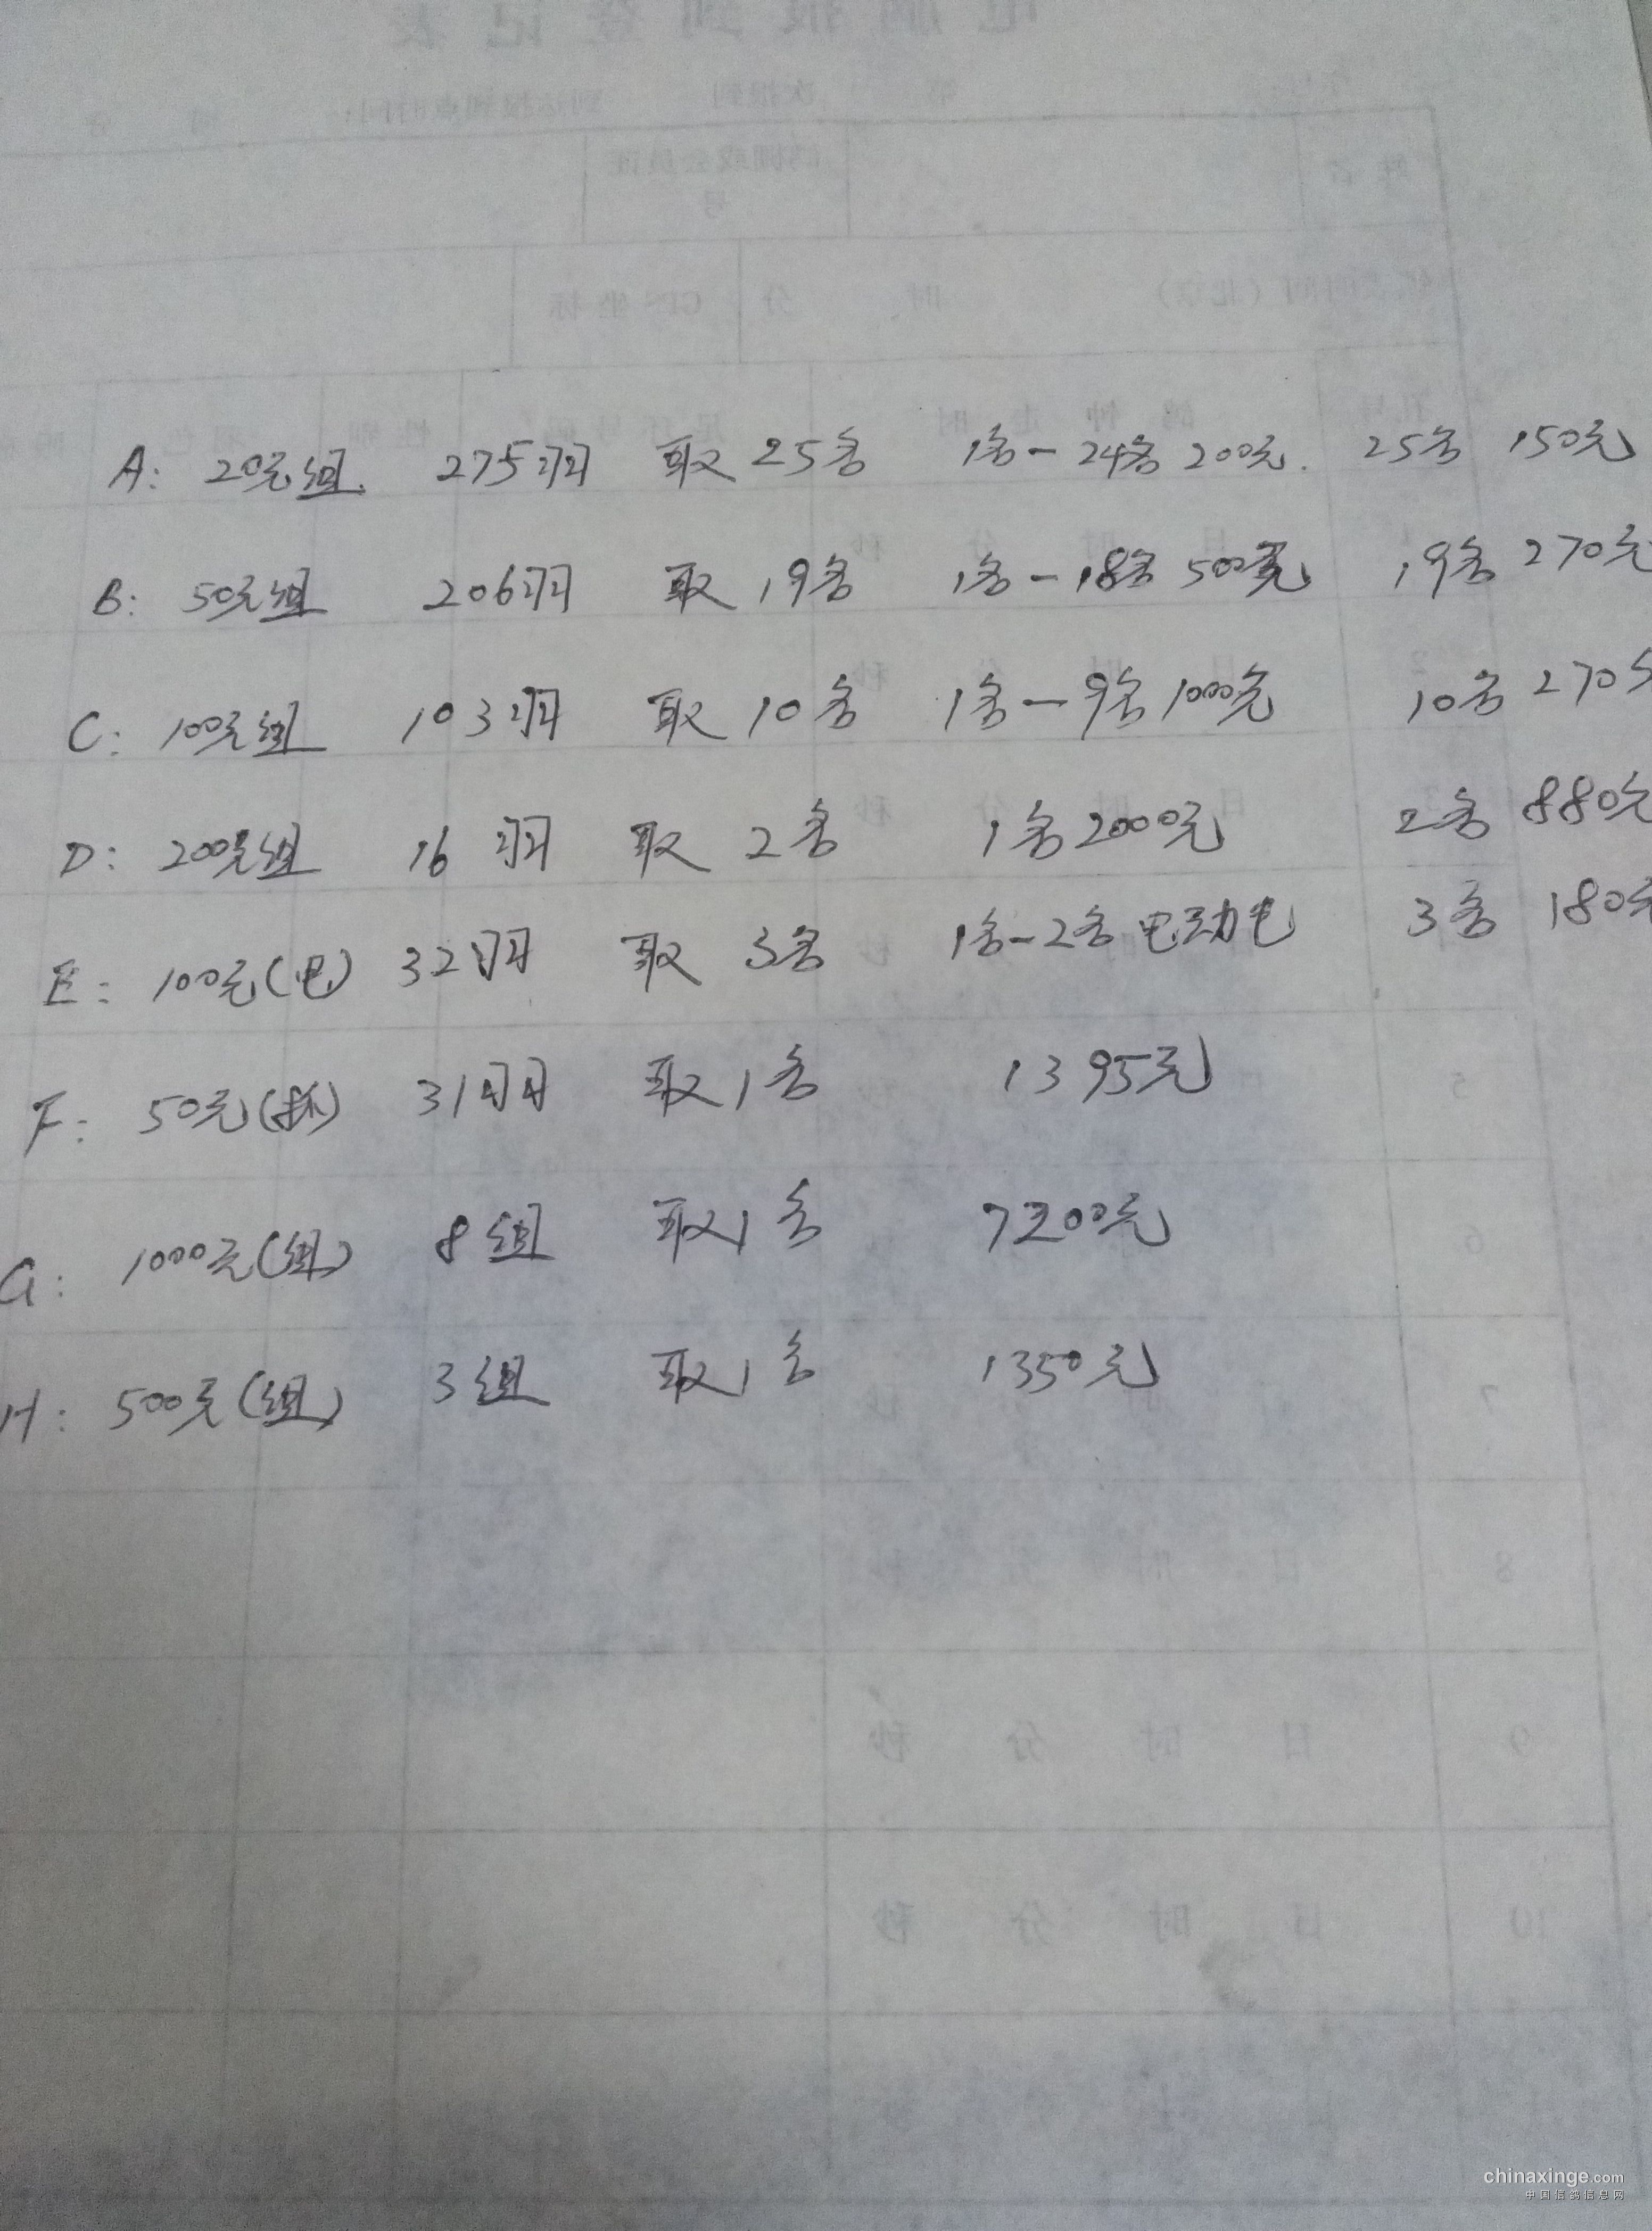 A: 20元组. 275羽 取25名 1名-24名 200元. 25名 150元
B: 50元组 206羽 取19名 1名-18名 500元 19名 270元
C: 100元组 103羽 取10名 1名-9名 1000元 10名 270元
D: 200元组 16羽 取2名 1名2000元 2名 880元
E: 100元(电) 32羽 取3名 1名-2名 电动 3名 180元
F: 50元 31羽 取1名 1395元
G: 1000元(组) 8组 取1名 7200元
H: 500元(组) 3组 取1名 1350元
chinaxinge.com
中国信鸽信息网